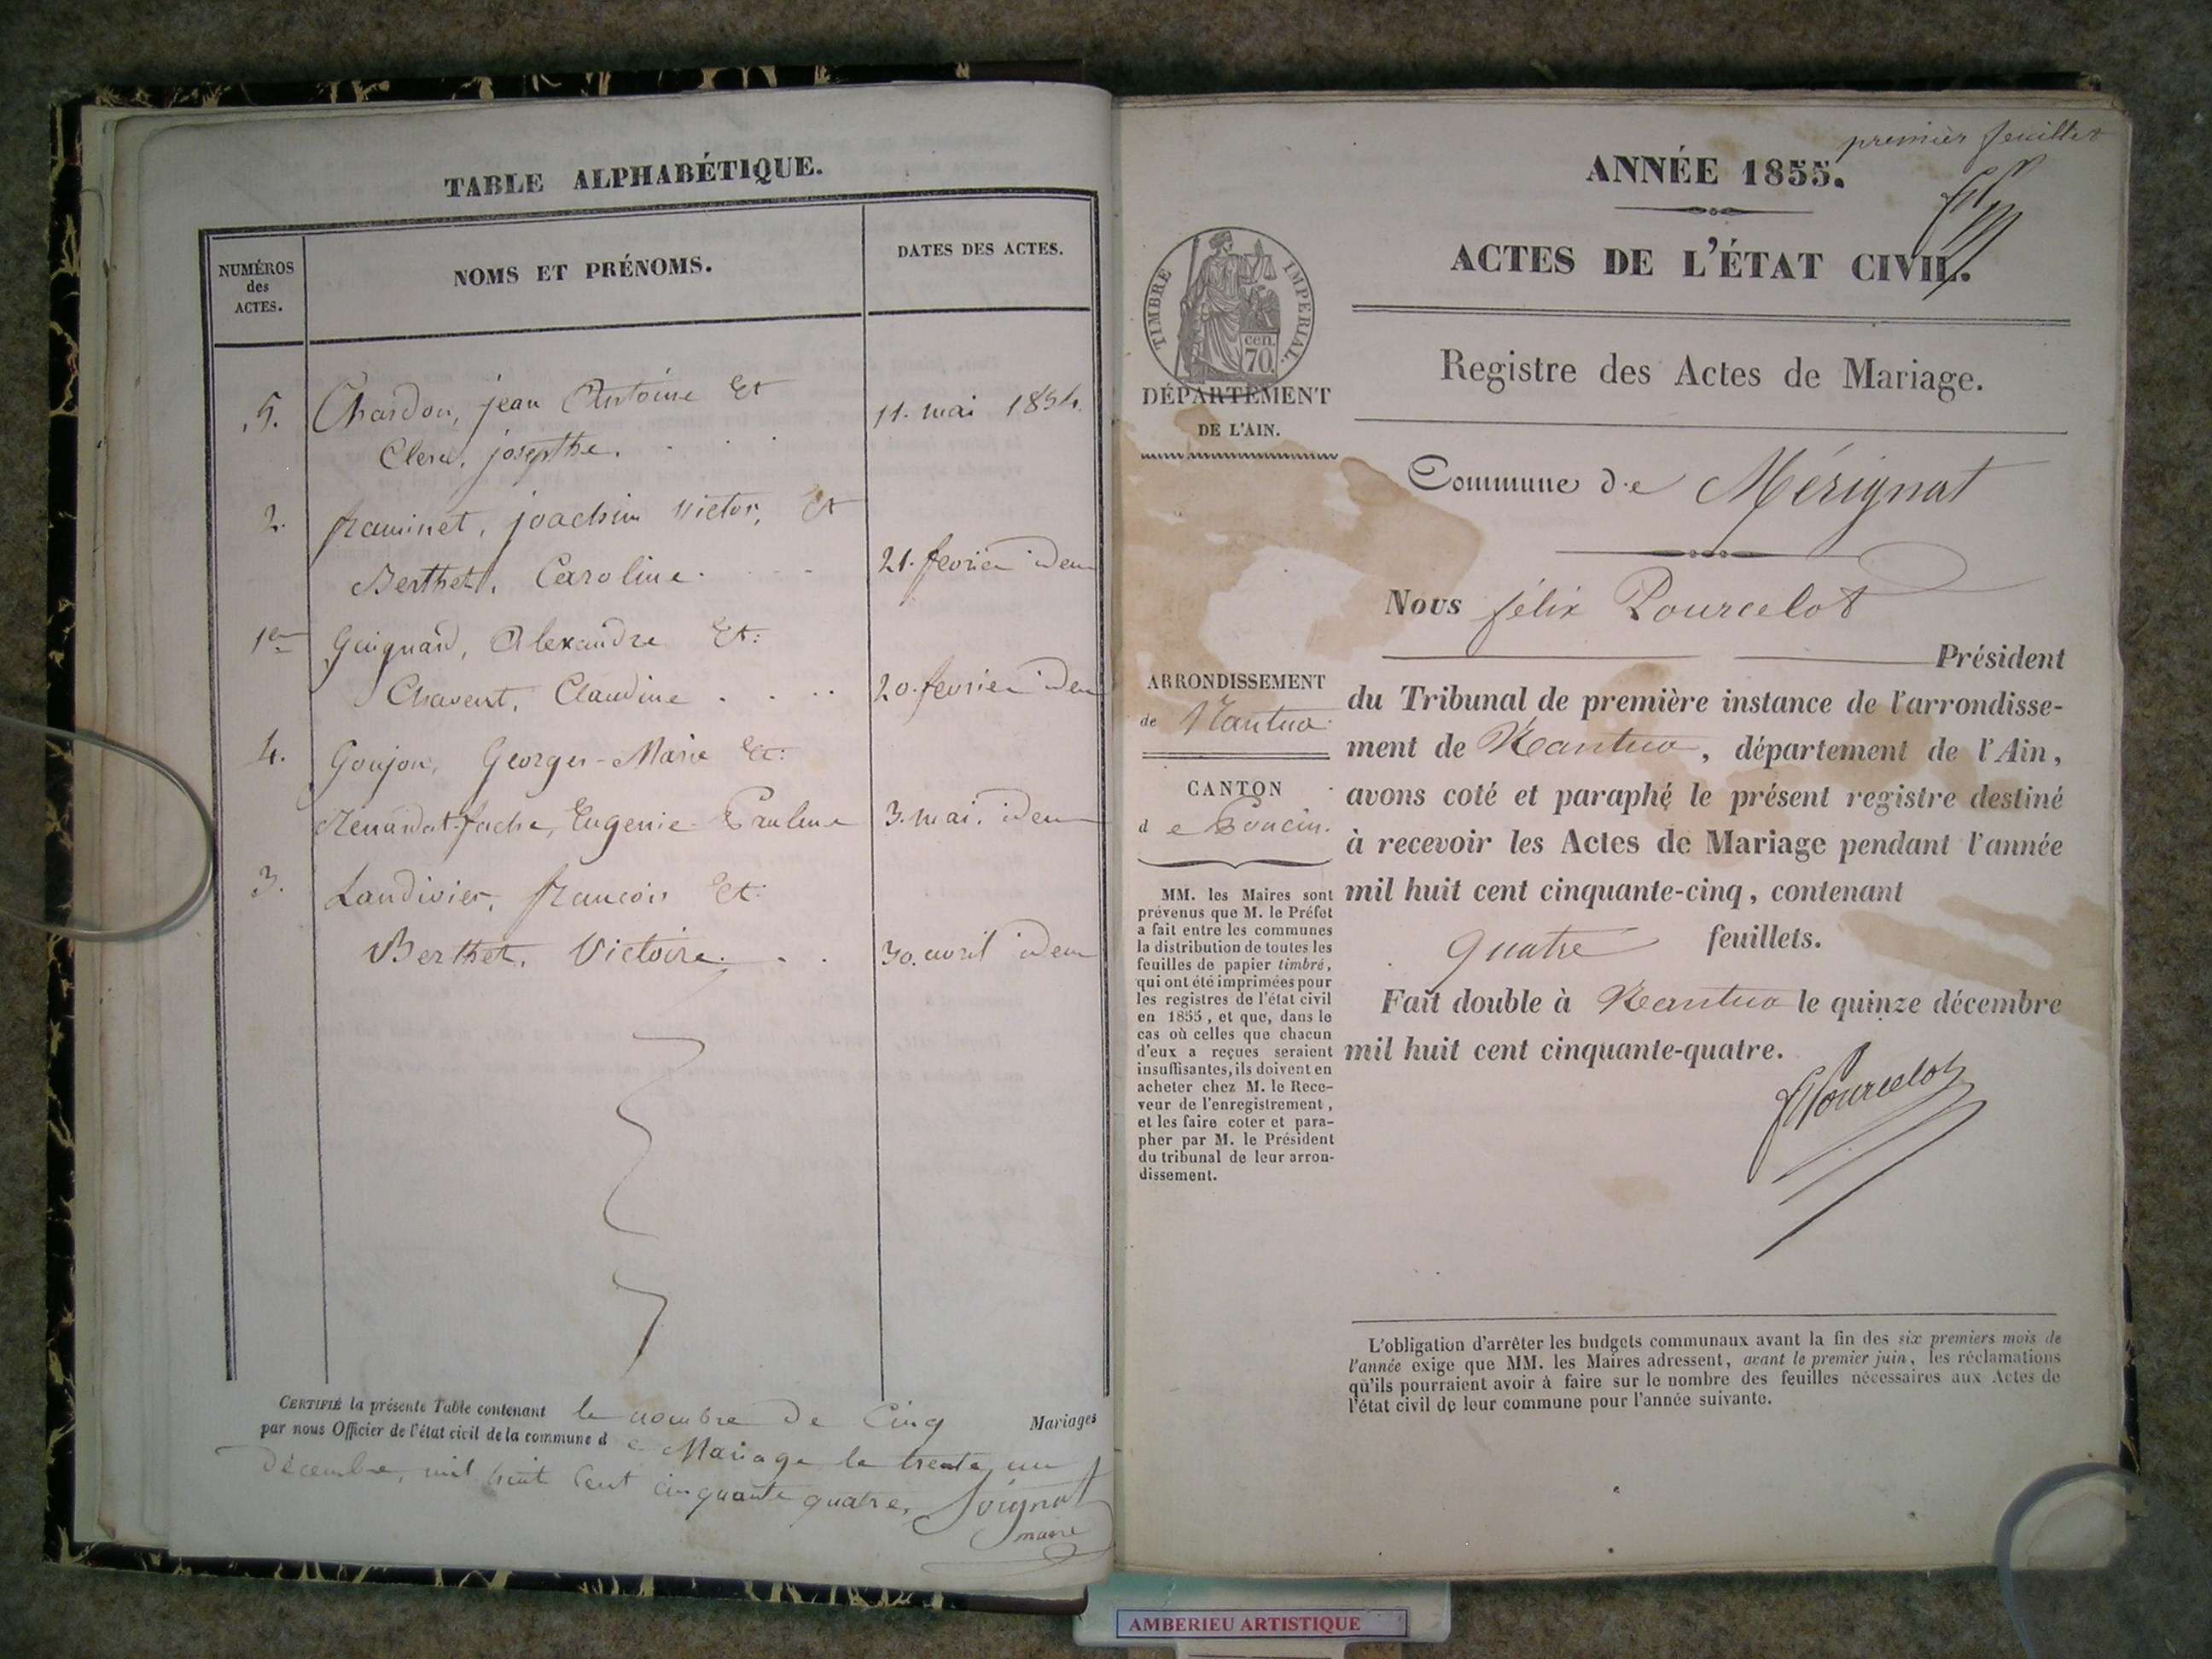 TABLE ALPHABÉTIQUE.
NUMÉROS
des
ACTES.
NOMS ET PRÉNOMS.
DATES DES ACTES.
5. Chardon, jean Antoine Et
Clerc, josepthe. 11. mai 1854.
2. framinet, joachim victor, Et
Berthet, Caroline. 21. fevrier idem
1er Guignard, Alexandre Et:
Chavent, Claudine 20. fevrier idem
4. Goujon, Georges-Marie Et:
Renandat-fache, Eugenie Pauline 3. mai. idem
3. Landivier, francois Et:
Berthet, Victoire. 30. avril idem
CERTIFIÉ la présente Table contenant le nombre de Cinq Mariages
par nous Officier de l'état civil de la commune d e Mariage le trente un
décembre, mil huit Cent cinquante quatre,
maire
premier feuillet
ANNÉE 1855.
ACTES DE L'ÉTAT CIVIL.
TIMBRE IMPERIAL.
cen.
70.
DÉPARTEMENT
DE L'AIN.
Registre des Actes de Mariage.
Commune de Mérignat
Nous félix Pourcelot
Président
ARRONDISSEMENT
de Nantua
CANTON
d e Poncin.
MM. les Maires sont
prévenus que M. le Préfet
a fait entre les communes
la distribution de toutes les
feuilles de papier timbré,
qui ont été imprimées pour
les registres de l'état civil
en 1855, et que, dans le
cas où celles que chacun
d'eux a reçues seraient
insuffisantes, ils doivent en
acheter chez M. le Rece-
veur de l'enregistrement,
et les faire coter et para-
pher par M. le Président
du tribunal de leur arron-
dissement.
du Tribunal de première instance de l'arrondisse-
ment de Nantua, département de l'Ain,
avons coté et paraphé le présent registre destiné
à recevoir les Actes de Mariage pendant l'année
mil huit cent cinquante-cinq, contenant
quatre feuillets.
Fait double à Nantua le quinze décembre
mil huit cent cinquante-quatre.
F Pourcelot
L'obligation d'arrêter les budgets communaux avant la fin des six premiers mois de
l'année exige que MM. les Maires adressent, avant le premier juin, les réclamations
qu'ils pourraient avoir à faire sur le nombre des feuilles nécessaires aux Actes de
l'état civil de leur commune pour l'année suivante.
AMBERIEU ARTISTIQUE